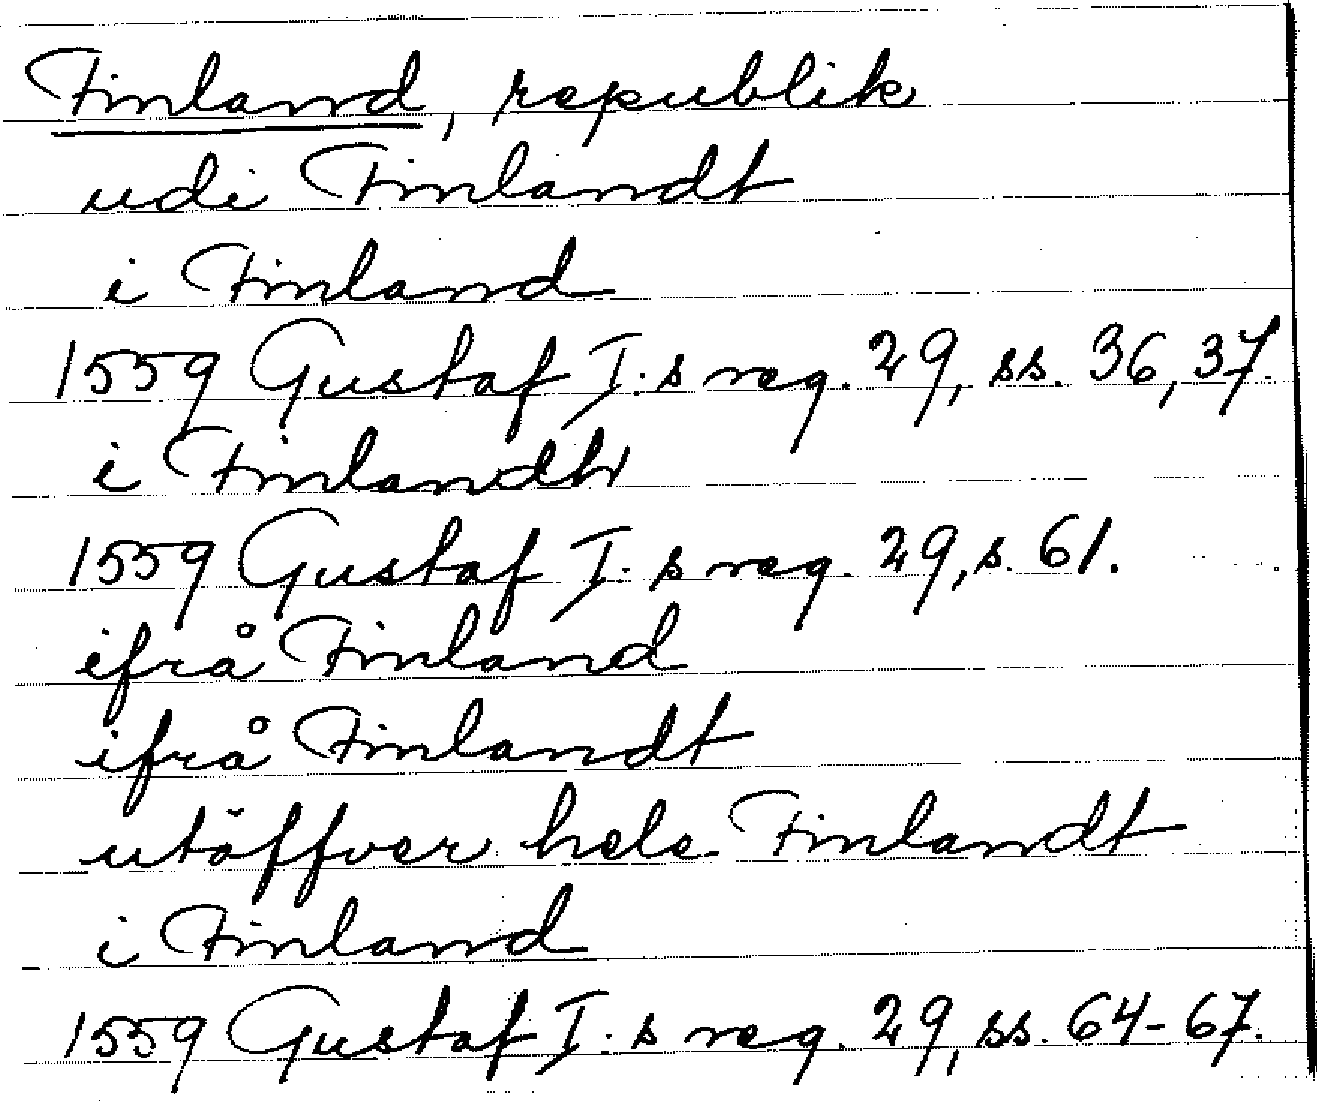 Finland, republik
udi Finlandt
i Finland
1559 Gustaf I.s reg. 29, ss. 36, 37.
i Finlandh
1559 Gustaf I.s reg. 29, s. 61.
ifrå Finland
ifrå Finlandt
utöffver hele Finlandt
i Finland
1559 Gustaf I.s reg. 29, ss. 64-67.